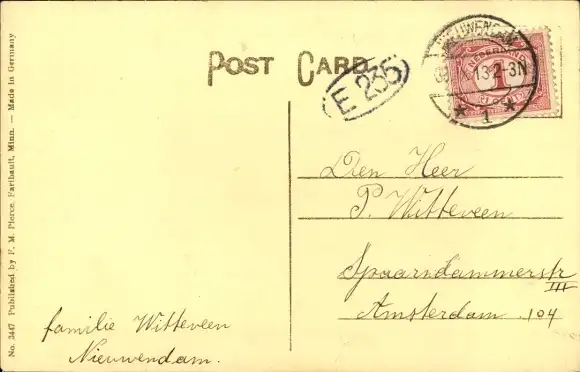 POST CARD
E 235
NIEUWENDAM
13 2-3N
1
NEDERLAND
1
Den Heer
P. Witteveen
Spaarndammerstr
III
Amsterdam 104
familie Witteveen
Nieuwendam.
No. 3447 Published by F. M. Pierce, Faribault, Minn. — Made in Germany